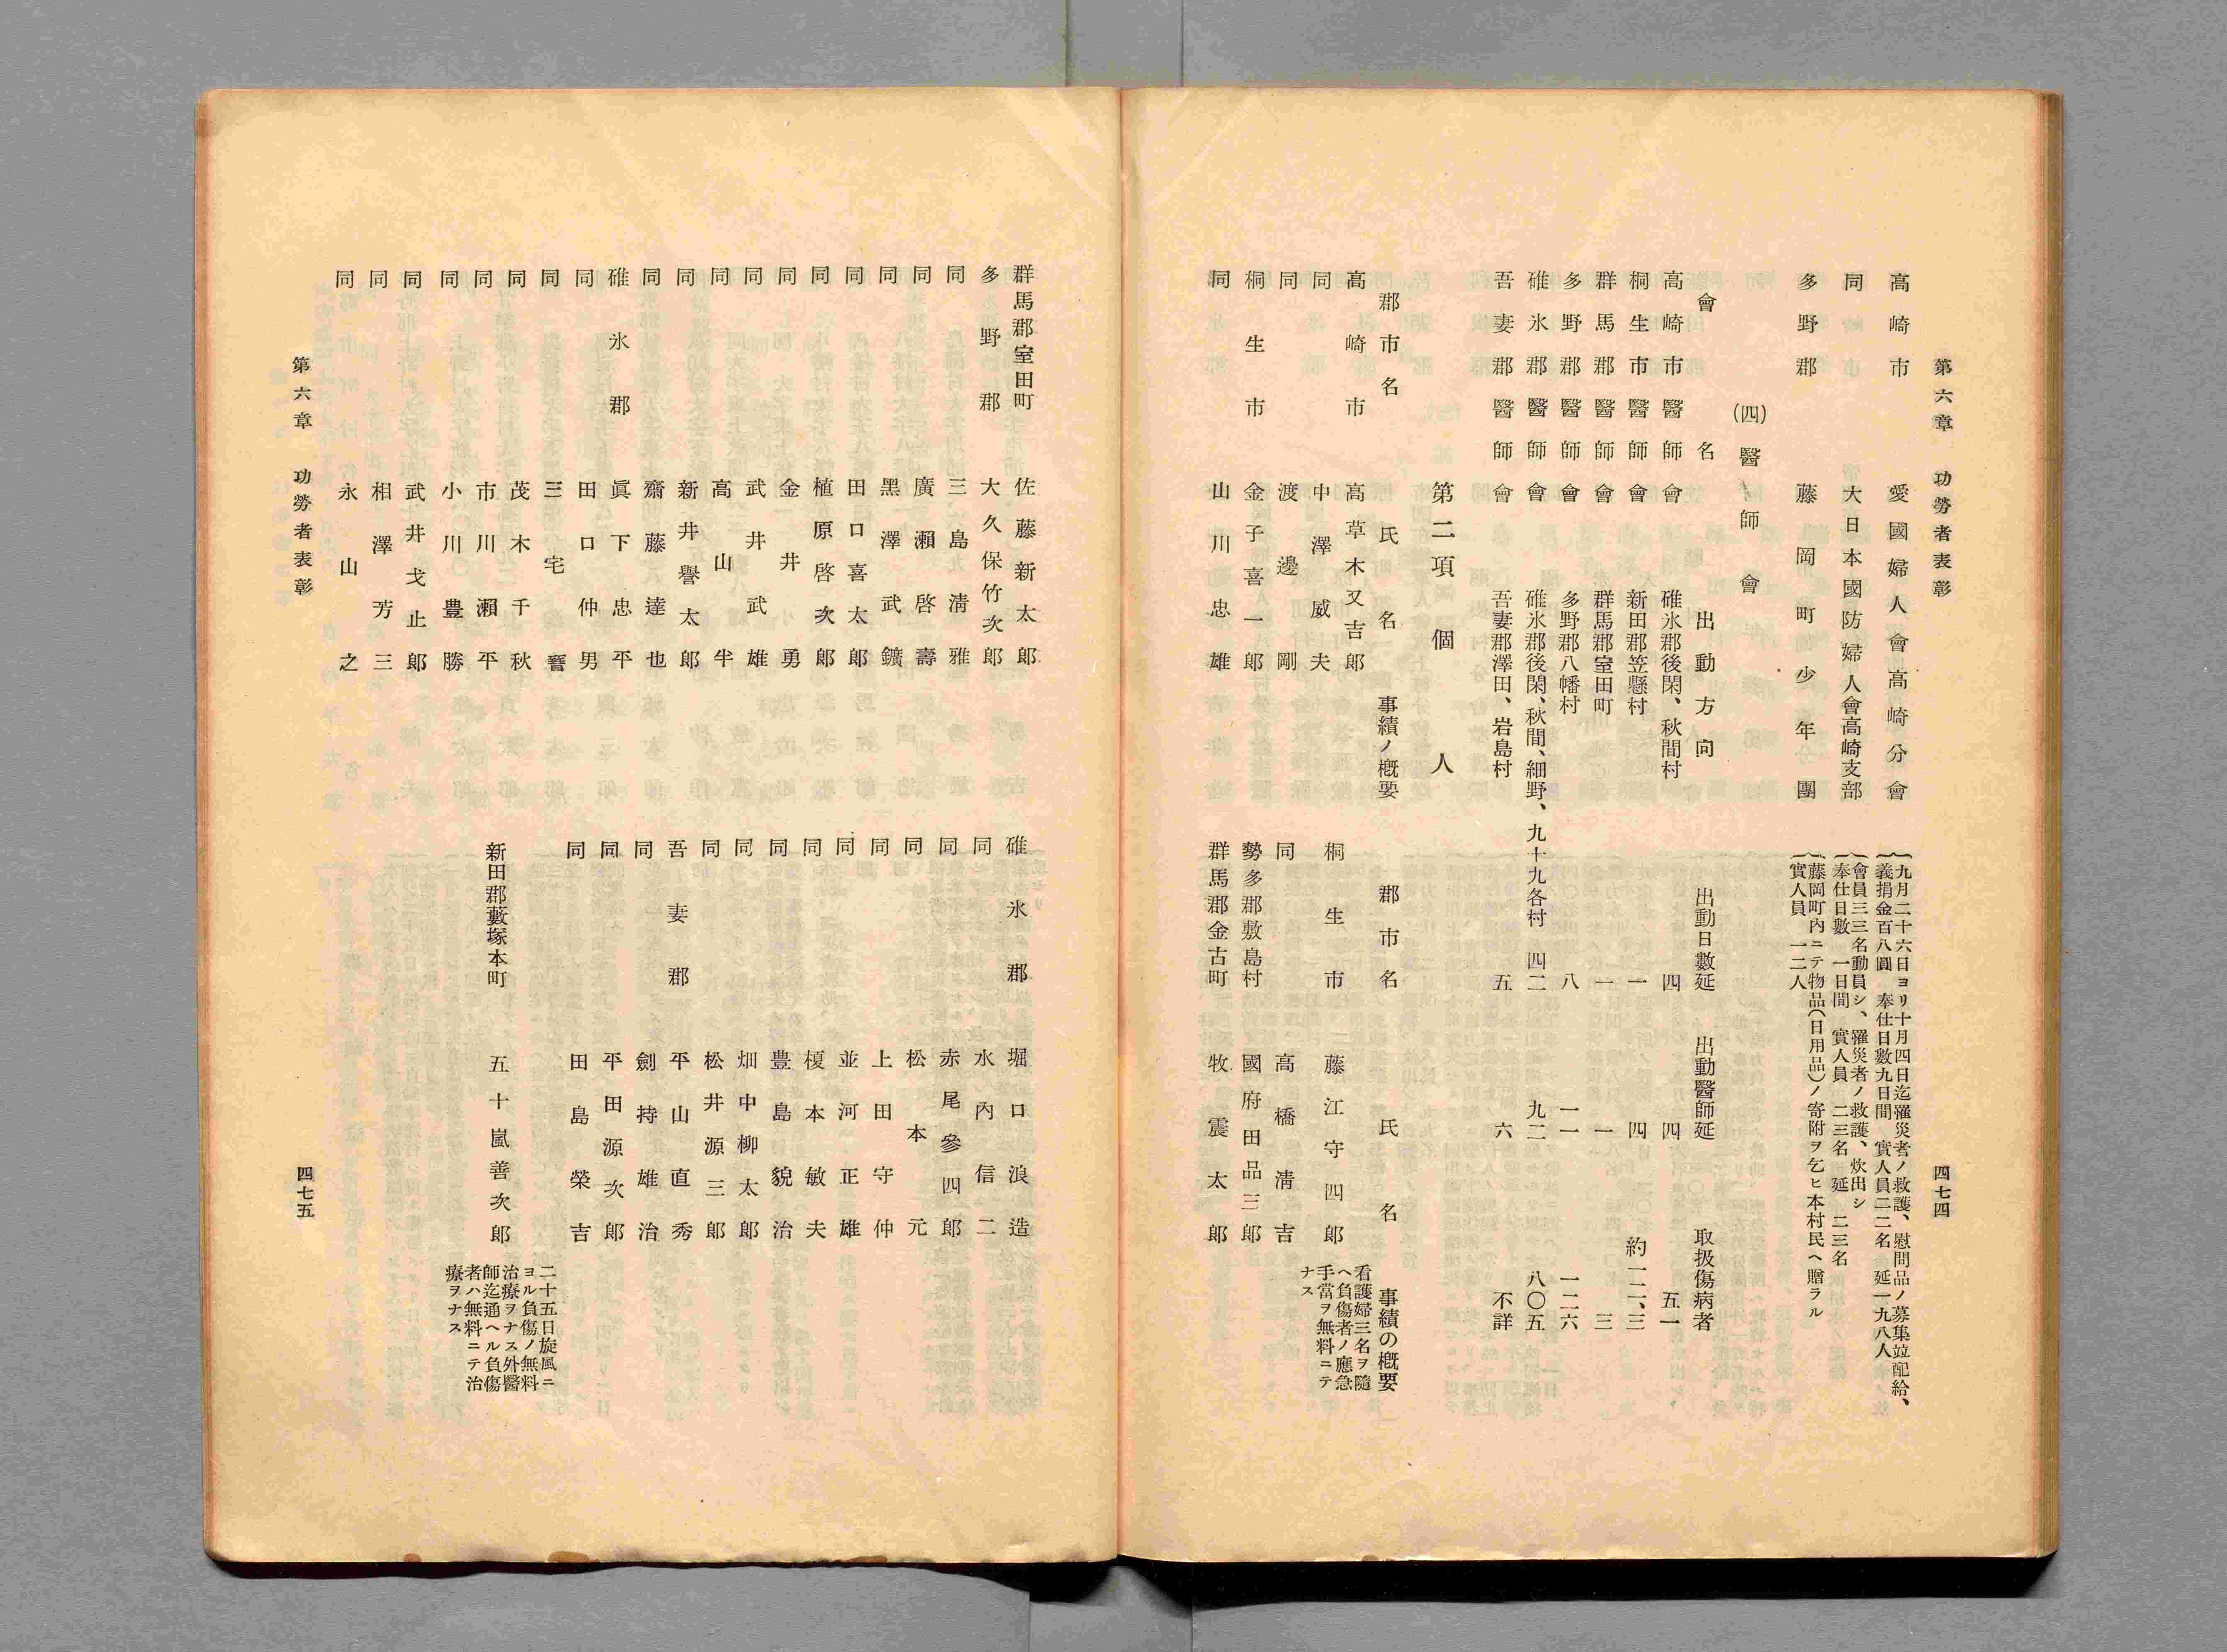 第六章　功勞者表彰
四七四
高崎市　愛國婦人會高崎分會
九月二十六日ヨリ十月四日迄罹災者ノ救護、慰問品ノ募集竝配給、
義捐金百八圓　奉仕日數九日間　實人員二二名　延一九八人
同　大日本國防婦人會高崎支部
會員三三名動員シ、罹災者ノ救護、炊出シ
奉仕日數　一日間　實人員　二三名　延　二三名
多野郡　藤岡町少年團
藤岡町內ニテ物品(日用品)ノ寄附ヲ乞ヒ本村民ヘ贈ラル
實人員　一二人
(四)醫師會
會名　出動方向　出動日數延　出動醫師延　取扱傷病者
高崎市醫師會　碓氷郡後閑、秋間村　四　四　五一
桐生市醫師會　新田郡笠懸村　一　四　約一二、三
群馬郡醫師會　群馬郡室田町　一　一　三
多野郡醫師會　多野郡八幡村　八　一一　一二六
碓氷郡醫師會　碓氷郡後閑、秋間、細野、九十九各村　四二　九二　八〇五
吾妻郡醫師會　吾妻郡澤田、岩島村　五　六　不詳
第二項　個人
郡市名　氏名　事績ノ槪要
高崎市　高草木又吉郎
同　中澤威夫
同　渡邊剛
桐生市　金子喜一郎
同　山川忠雄
郡市名　氏名　事績の槪要
桐生市　藤江守四郎
看護婦三名ヲ隨
ヘ負傷者ノ應急
手當ヲ無料ニテ
ナス
同　高橋淸吉
勢多郡敷島村　國府田品三郎
群馬郡金古町　牧震太郎
群馬郡室田町　佐藤新太郎
多野郡　大久保竹次郎
同　三島淸雅
同　廣瀨啓壽
同　黑澤武鑛
同　田口喜太郎
同　植原啓次郎
同　金井勇
同　武井武雄
同　高山半
同　新井譽太郎
同　齋藤達也
碓氷郡　眞下忠平
同　田口仲男
同　三宅
同　茂木千秋
同　市川瀨平
同　小川豊勝
同　武井戈止郎
同　相澤芳三
同　永山之
碓氷郡　堀口浪造
同　水內信二
同　赤尾參四郎
同　松本元
同　上田守仲
同　並河正雄
同　榎本敏夫
同　豊島貌治
同　畑中柳太郎
同　松井源三郎
吾妻郡　平山直秀
同　劍持雄治
同　平田源次郎
同　田島榮吉
新田郡藪塚本町　五十嵐善次郎
二十五日旋風ニ
ヨル負傷ノ無料
治療ヲナス外醫
師迄通ヘル負傷
者ハ無料ニテ治
療ヲナス
第六章　功勞者表彰
四七五